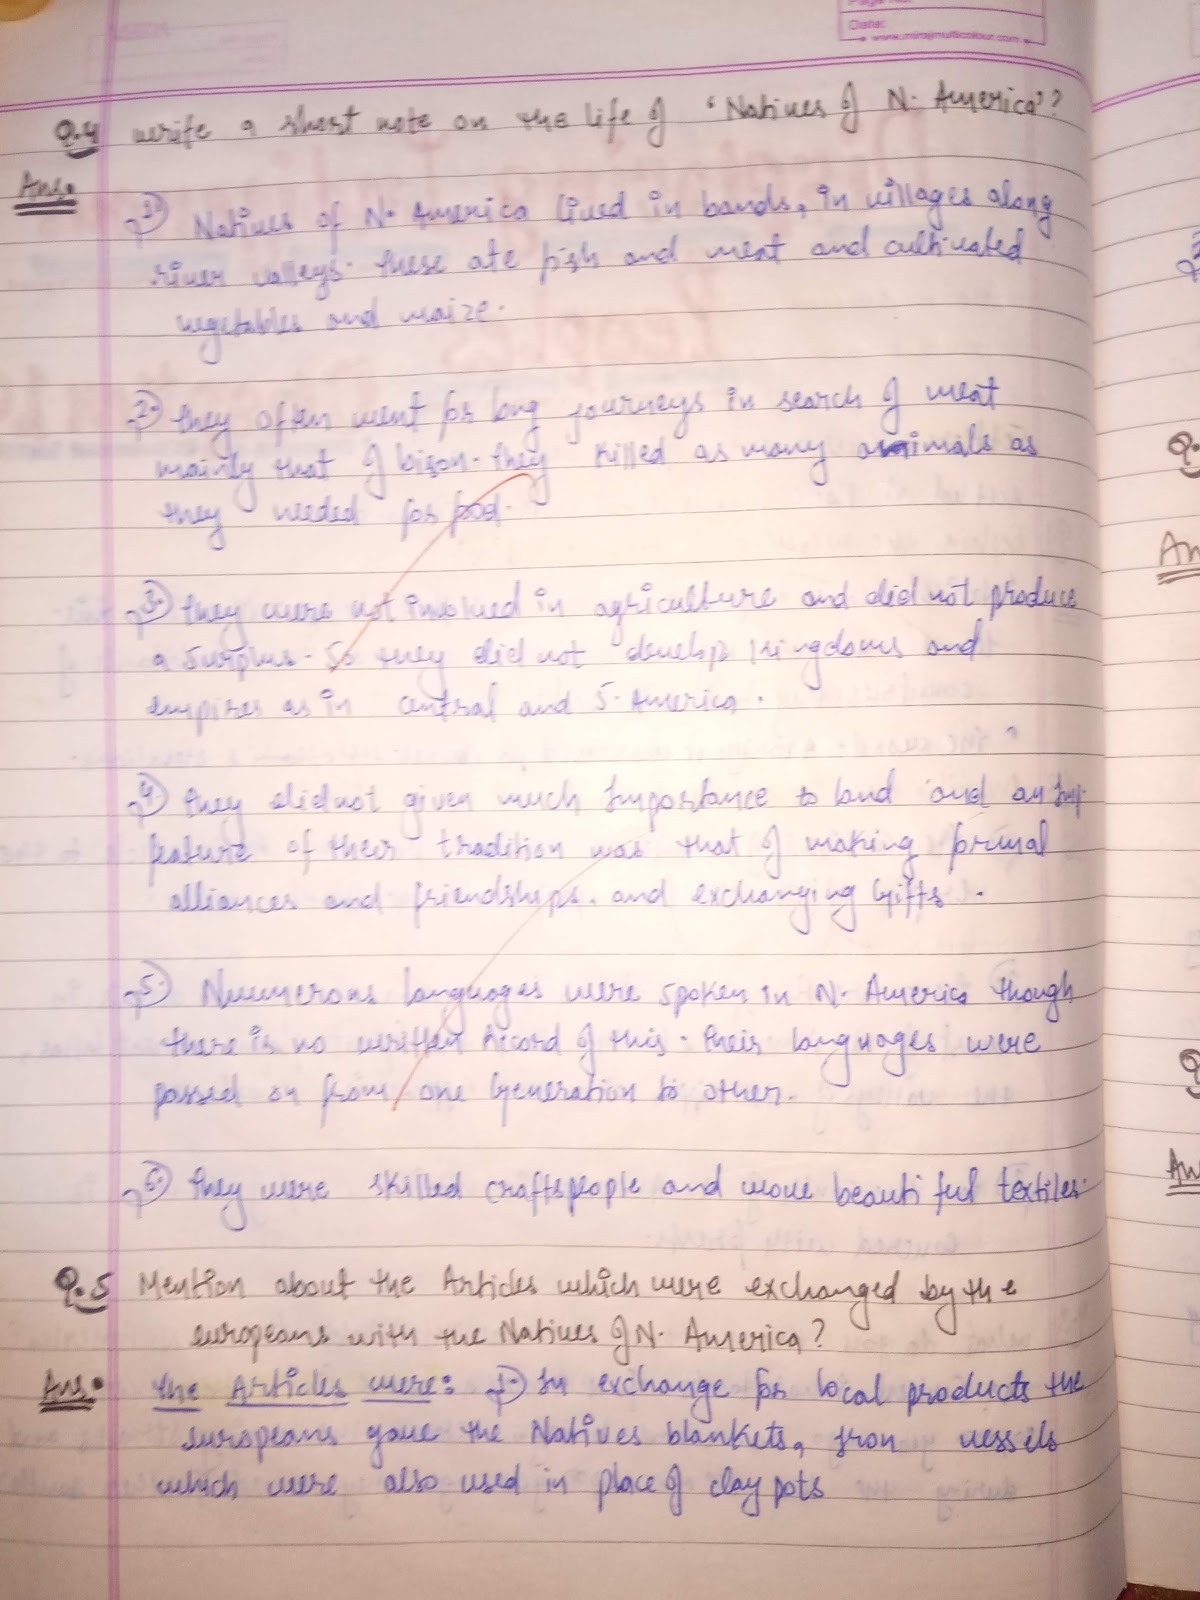 Date:
www.mirajmulticolour.com
Q.4 write a short note on the life of 'Natives of N. America'?
Ans.
1) Natives of N. America lived in bands, in villages along
river valleys. these ate fish and meat and cultivated
vegetables and maize.
2. they often went for long journeys in search of meat
mainly that of bison. they killed as many animals as
they needed for food.
3. they were not involved in agriculture and did not produce
a surplus. So they did not develop kingdoms and
empires as in central and S. America.
4) they did not given much Importance to land and an Imp.
feature of their tradition was that of making formal
alliances and friendships. and exchanging Gifts.
5. Numerous languages were spoken in N. America though
there is no written record of this. their languages were
passed on from one Generation to other.
6. they were skilled craftspeople and wove beautiful textiles.
Q.5 Mention about the Articles which were exchanged by the
europeans with the Natives of N. America?
Ans. the Articles were: 1. In exchange for local products the
europeans gave the Natives blankets, Iron vessels
which were also used in place of clay pots
Q.
An
Q
An